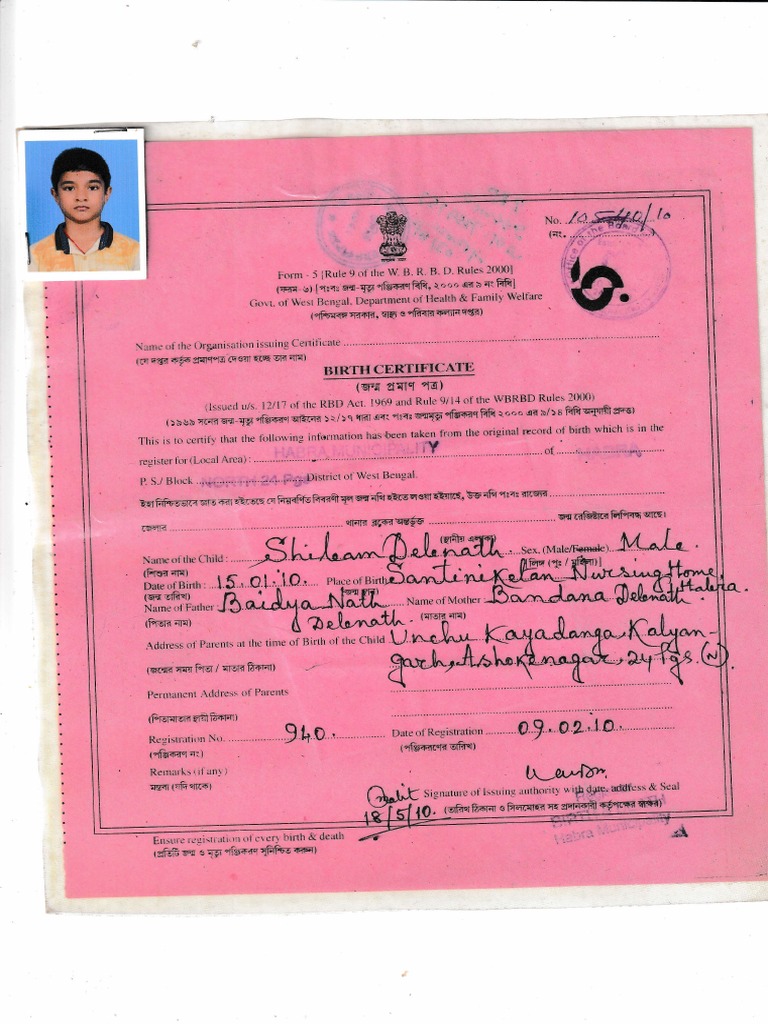 No. 10540/10
(নং
Form - 5 [Rule 9 of the W. B. R. B. D. Rules 2000]
(ফরম-৬) [পঃবঃ জন্ম-মৃত্যু পঞ্জিকরণ বিধি, ২০০০ এর ৯ নং বিধি]
Govt. of West Bengal, Department of Health & Family Welfare
(পশ্চিমবঙ্গ সরকার, স্বাস্থ্য ও পরিবার কল্যান দপ্তর)
Name of the Organisation issuing Certificate
(যে দপ্তর কর্তৃক প্রমাণপত্র দেওয়া হচ্ছে তার নাম)
BIRTH CERTIFICATE
(জন্ম প্রমাণ পত্র)
(Issued u/s. 12/17 of the RBD Act. 1969 and Rule 9/14 of the WBRBD Rules 2000)
(১৯৬৯ সনের জন্ম-মৃত্যু পঞ্জিকরণ আইনের ১২/১৭ ধারা এবং পঃবঃ জন্মমৃত্যু পঞ্জিকরণ বিধি ২০০০ এর ৯/১৪ বিধি অনুযায়ী প্রদত্ত)
This is to certify that the following information has been taken from the original record of birth which is in the
register for (Local Area) : HABRA MUNICIPALITY of HABRA
P. S./ Block NORTH 24 Pgs District of West Bengal.
ইহা নিশ্চিতভাবে জ্ঞাত করা হইতেছে যে নিম্নবর্ণিত বিবরণী মূল জন্ম নথি হইতে লওয়া হইয়াছে, উক্ত নথি পঃবঃ রাজ্যের
জেলার থানার ব্লকের অন্তর্ভূক্ত জন্ম রেজিষ্টারে লিপিবদ্ধ আছে।
(স্থানীয় এলাকা)
Name of the Child : Shibam Debnath. Sex, (Male/Female) Male.
(শিশুর নাম) [লিঙ্গ (পুঃ / মহিলা)]
Date of Birth : 15.01.10. Place of Birth Santiniketan Nursing Home, Habra.
(জন্ম তারিখ) (জন্ম স্থান)
Name of Father Baidya Nath Debnath. Name of Mother Bandana Debnath.
(পিতার নাম) (মাতার নাম)
Address of Parents at the time of Birth of the Child Unchu Kayadanga, Kalyan-
(জন্মের সময় পিতা / মাতার ঠিকানা) garh, Ashokenagar, 24 Pgs. (N).
Permanent Address of Parents
(পিতামাতার স্থায়ী ঠিকানা)
Registration No. 940. Date of Registration 09.02.10.
(পঞ্জিকরণ নং) (পঞ্জিকরণের তারিখ)
Remarks (if any)
মন্তব্য (যদি থাকে)
Signature of Issuing authority with date, address & Seal
18/5/10. (তারিখ ঠিকানা ও সিলমোহর সহ প্রদানকারী কর্তৃপক্ষের স্বাক্ষর)
Habra Municipality
Ensure registration of every birth & death
(প্রতিটি জন্ম ও মৃত্যু পঞ্জিকরণ সুনিশ্চিত করুন)